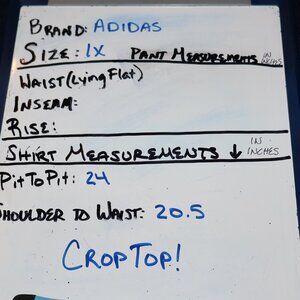 BRAND: ADIDAS
SIZE: 1X PANT MEASUREMENTS IN INCHES
WAIST (Lying Flat)
INSEAM:
RISE:
SHIRT MEASUREMENTS ↓ IN INCHES
PitToPit: 24
SHOULDER TO WAIST: 20.5
CROPTOP!